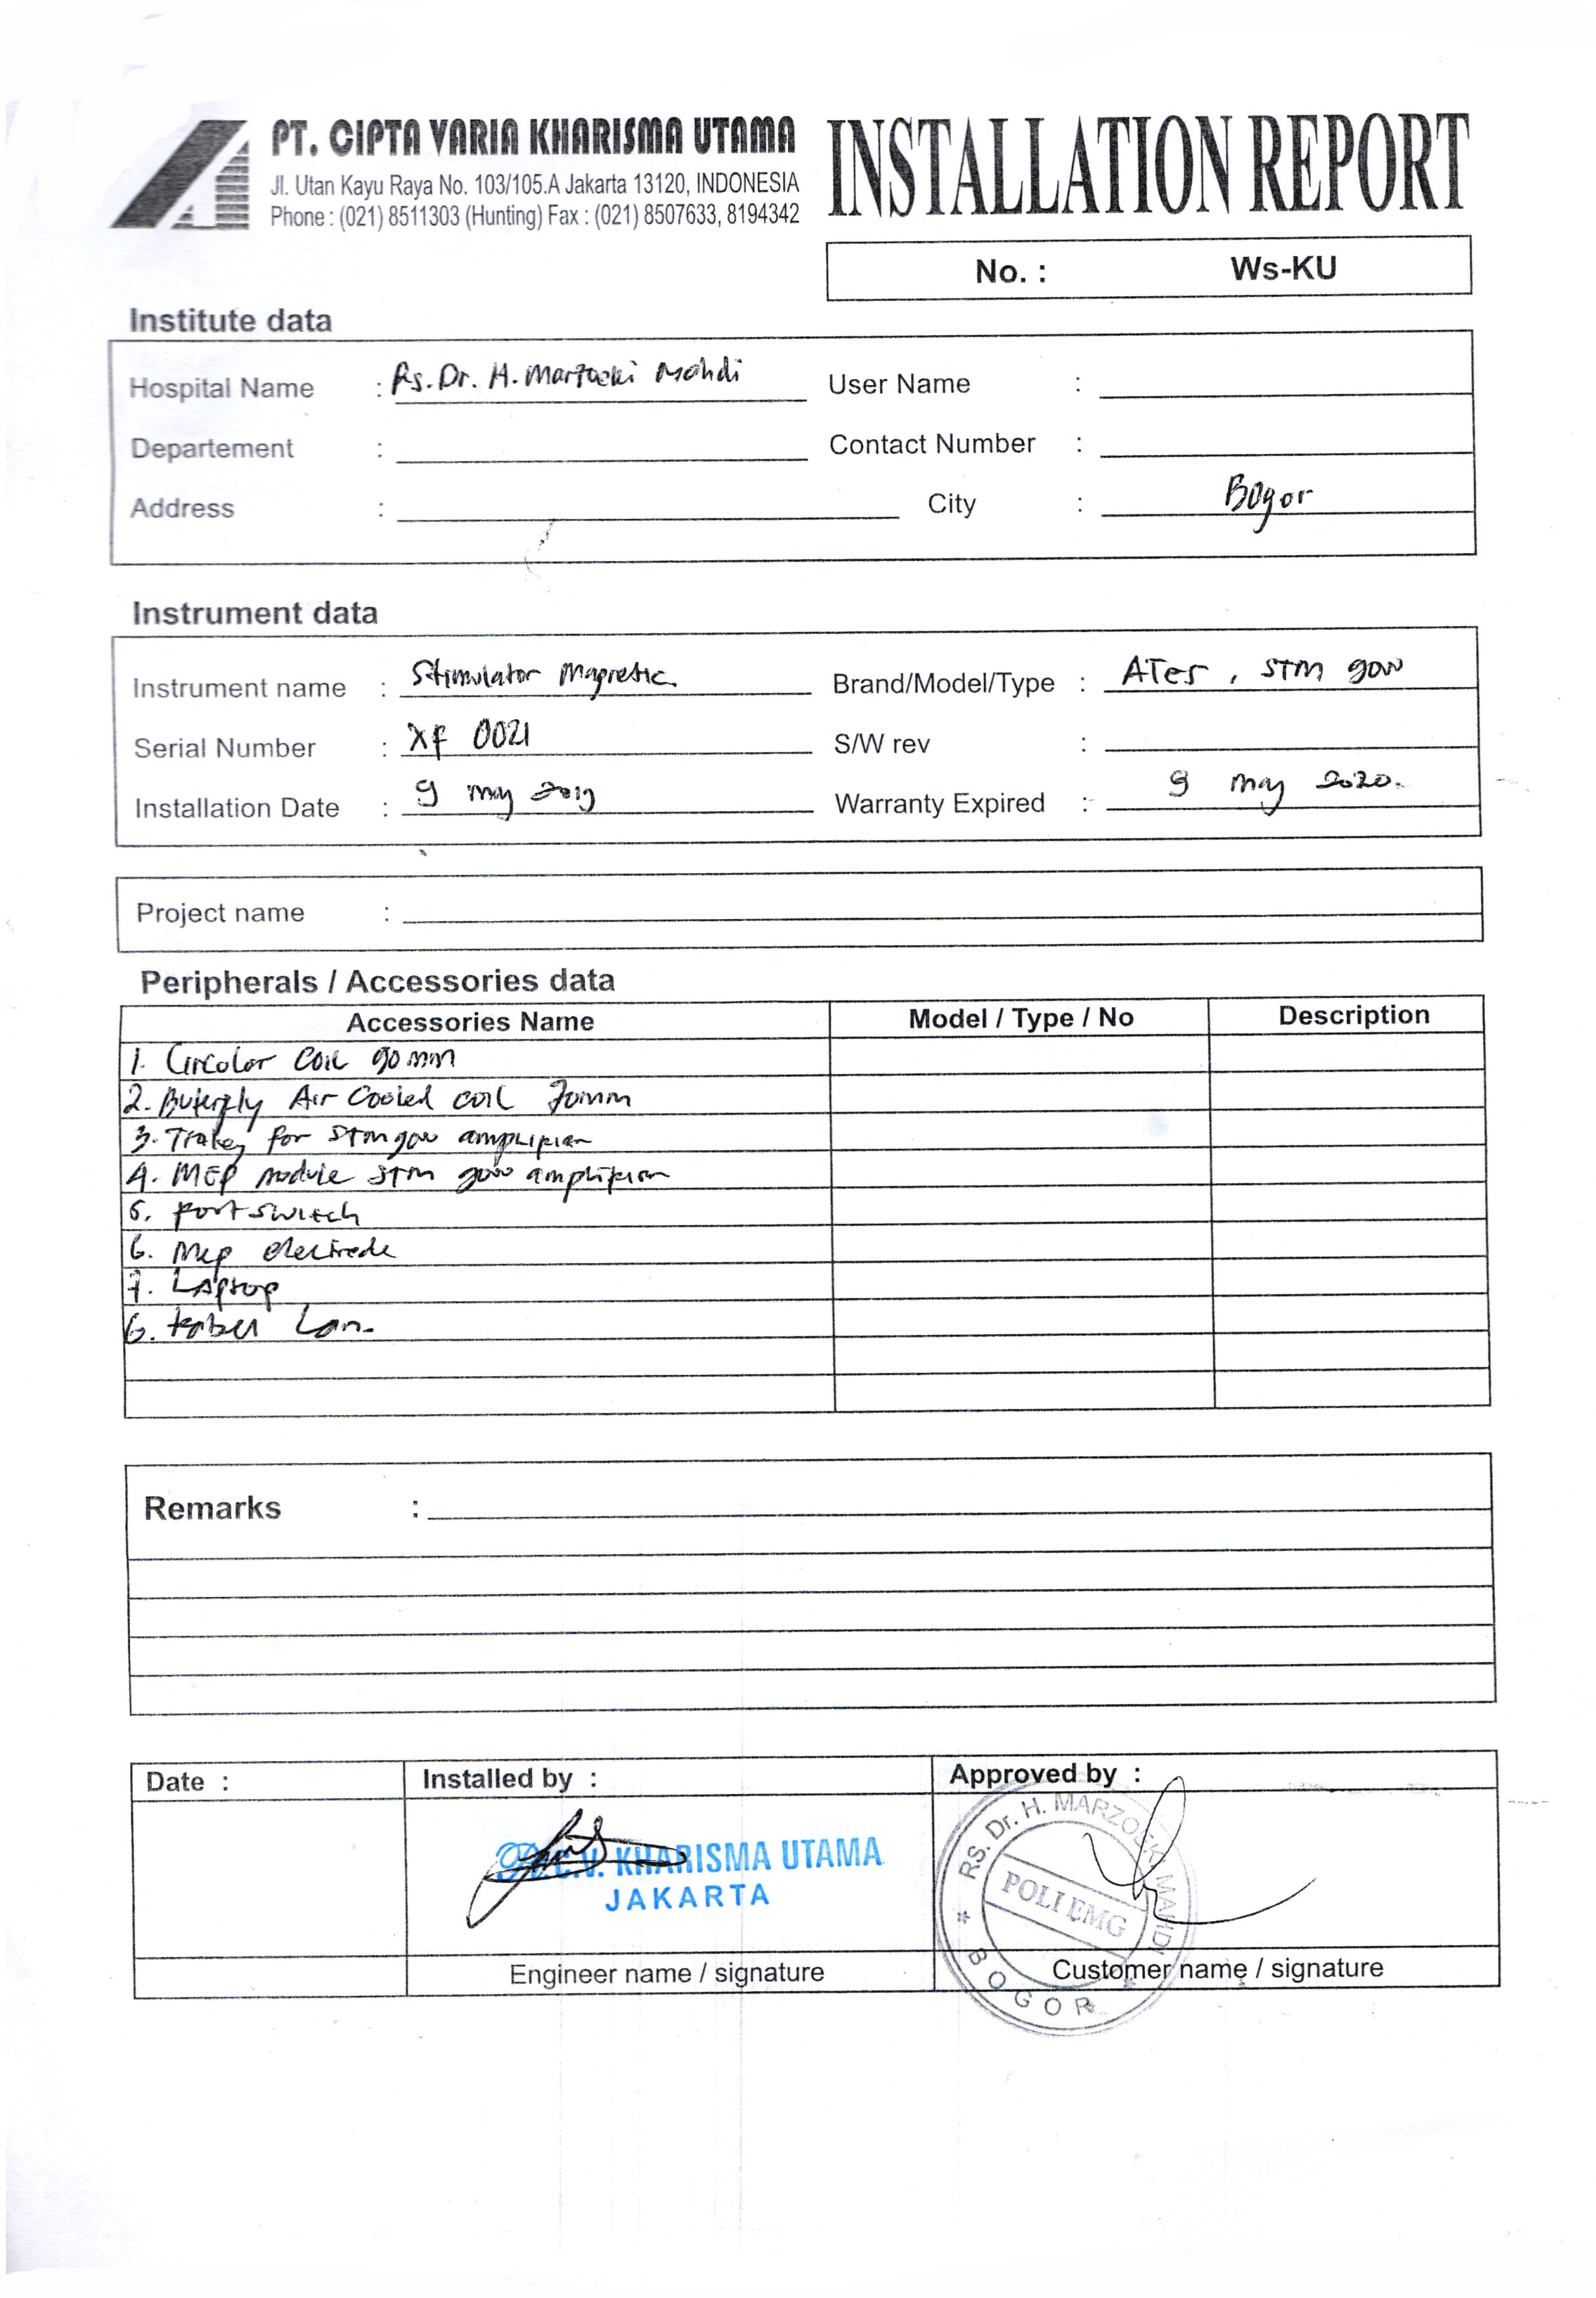 PT. CIPTA VARIA KHARISMA UTAMA
Jl. Utan Kayu Raya No. 103/105.A Jakarta 13120, INDONESIA
Phone : (021) 8511303 (Hunting) Fax : (021) 8507633, 8194342
INSTALLATION REPORT
No. : Ws-KU
Institute data
Hospital Name : Rs. Dr. H. Marzoeki Mahdi
User Name :
Departement :
Contact Number :
Address :
City : Bogor
Instrument data
Instrument name : Stimulator Magnetic
Brand/Model/Type : ATes, STM 9000
Serial Number : XF 0021
S/W rev :
Installation Date : 9 may 2019
Warranty Expired : 9 may 2020.
Project name :
Peripherals / Accessories data
Accessories Name Model / Type / No Description
1. Circolar coil 90 mm
2. Buterfly Air Cooled coil 70mm
3. for STM 9000
4. MEP module STM 9000
5. footswitch
6. Mep electrode
7. Laptop
6. Kabel Lan.
Remarks :
Date :
Installed by :
Approved by :
C.V. KHARISMA UTAMA
JAKARTA
RS. Dr. H. MARZOEKI MAHDI
POLI EMG
* BOGOR *
Engineer name / signature
Customer name / signature